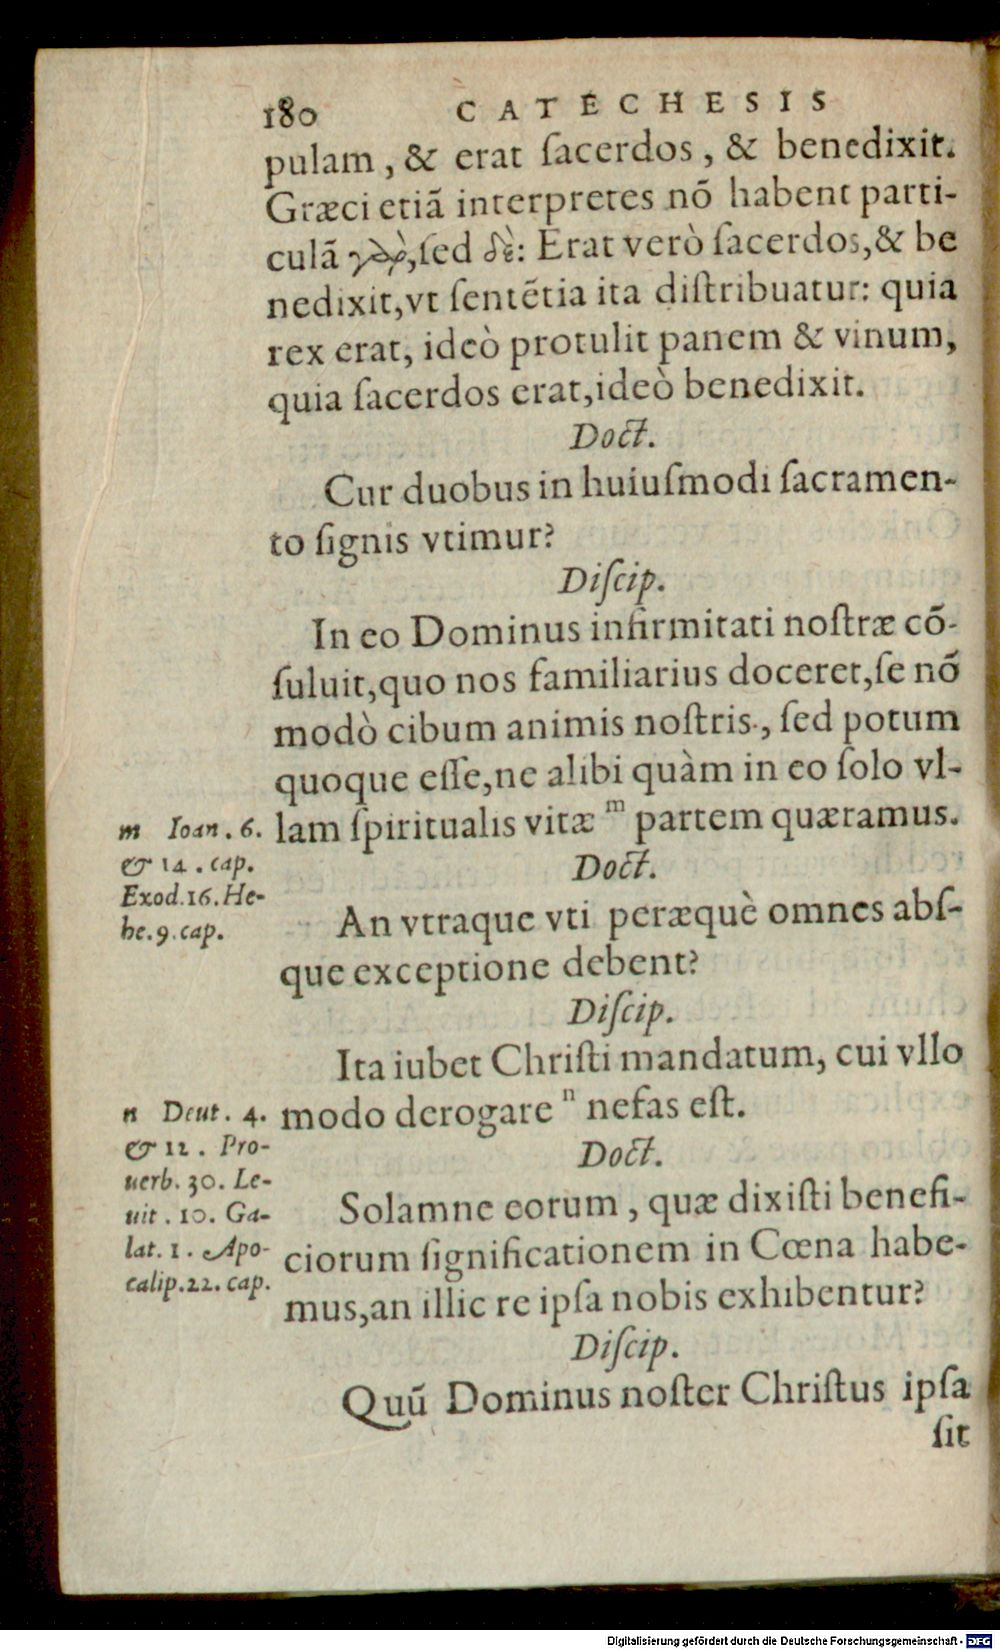 180 CATECHESIS
pulam, & erat ſacerdos, & benedixit.
Græci etiā interpretes nō habent parti-
culā γὰρ, ſed δὲ: Erat verò ſacerdos, & be
nedixit, vt ſentētia ita diſtribuatur: quia
rex erat, ideò protulit panem & vinum,
quia ſacerdos erat, ideò benedixit.
Doct.
Cur duobus in huiuſmodi ſacramen-
to ſignis vtimur?
Diſcip.
In eo Dominus infirmitati noſtræ cō-
ſuluit, quo nos familiarius doceret, ſe nō
modò cibum animis noſtris, ſed potum
quoque eſſe, ne alibi quàm in eo ſolo vl-
lam ſpiritualis vitæ m partem quæramus.
m Ioan. 6.
& 14. cap.
Exod. 16. He-
be. 9. cap.
Doct.
An vtraque vti peræquè omnes abſ-
que exceptione debent?
Diſcip.
Ita iubet Chriſti mandatum, cui vllo
modo derogare n nefas eſt.
n Deut. 4.
& 12. Pro-
uerb. 30. Le-
uit. 10. Ga-
lat. 1. Apo-
calip. 22. cap.
Doct.
Solamne eorum, quæ dixiſti benefi-
ciorum ſignificationem in Cœna habe-
mus, an illic re ipſa nobis exhibentur?
Diſcip.
Quū Dominus noſter Chriſtus ipſa
ſit
Digitalisierung gefördert durch die Deutsche Forschungsgemeinschaft - DFG